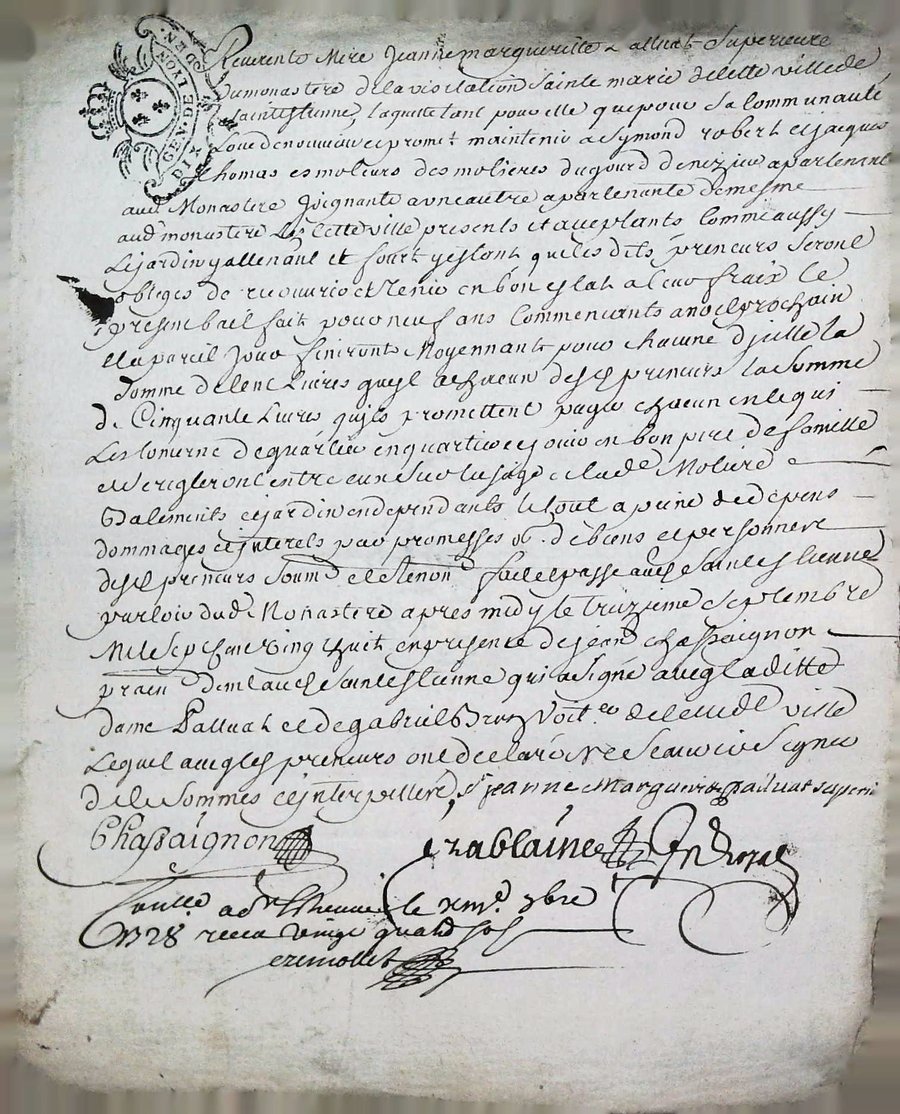 GEN. DE LYON
DIX DEN.
Reverente Mere Jeanne margueritte superieure
du monastere de la visitation Sainte marie de cette ville de
Saint Estienne, laquelle tant pour elle que pour sa Communauté
Loue de nouveau et promet maintenir a Symond robert et jacques
Thomas esmoleurs des molieres du gourd apartenant
aud Monastere joignante a une autre apartenante de mesme
aud monastere Les cette ville presents et aceptants Comme aussy
Le jardin y attenant et quoy lesdits preneurs seront
obligés de recouvrir et tenir en bon estat a leur fraix le
present bail fait pour neuf ans Commencants a noel prochain
et a pareil jour finiront Moyennant pour chacune d'jcelle la
Somme de Cent Livres quest a chacun desd preneurs la somme
de Cinquante Livres quils promettent payer chacun en ce qui
Les Concerne de quartier en quartier et jouir en bon pere de famille
et se regleront entre eux sur lusage de lad Moliere
Batiments et jardin en dependants Le tout a peine de depens
dommages et jnterets par promesses ob. de biens et personnere
desd preneurs Soum et Renon fait et passé aud Saint Estienne
parloir dud Monastere apres midy le treizieme Septembre
Mil Sept Cent vingt huit en presence de jean Chassaignon
praen dem aud Saint Estienne qui a signé avec laditte
dame Palluat et de gabriel de cette ville
Lequel avec les preneurs ont declaré Ne scavoir Signer
de ce Sommés et jnterpellés, Sr jeanne Marguerite Palluat superi
Chassaignon chablaine
a St Estienne le xiiie 7bre
1728 receu vingt quatre sols